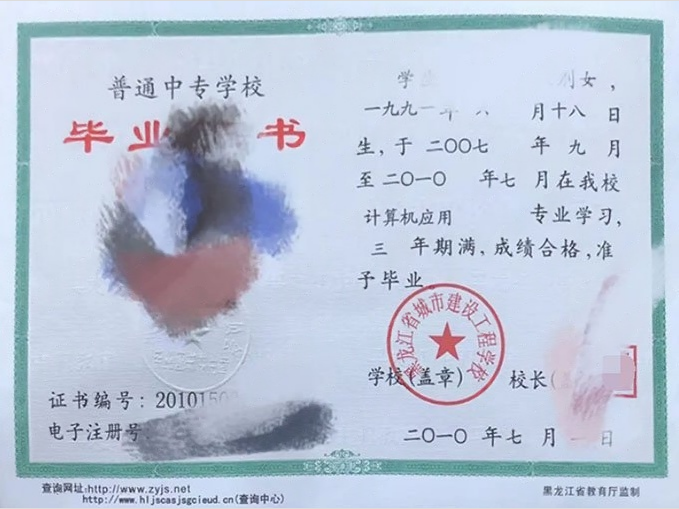 普通中专学校
毕业 书
证书编号: 2010150
电子注册号
学 别女,
一九九一年 六 月十八日
生,于 二〇〇七 年 九 月
至二〇一〇 年七 月在我校
计算机应用 专业学习,
三 年期满,成绩合格,准
予毕业。
黑龙江省城市建设工程学校
学校(盖章) 校长(
二〇一〇 年七 月 日
查询网址:http://www.zyjs.net
http://www.hljscasjsgcieud.cn(查询中心)
黑龙江省教育厅监制